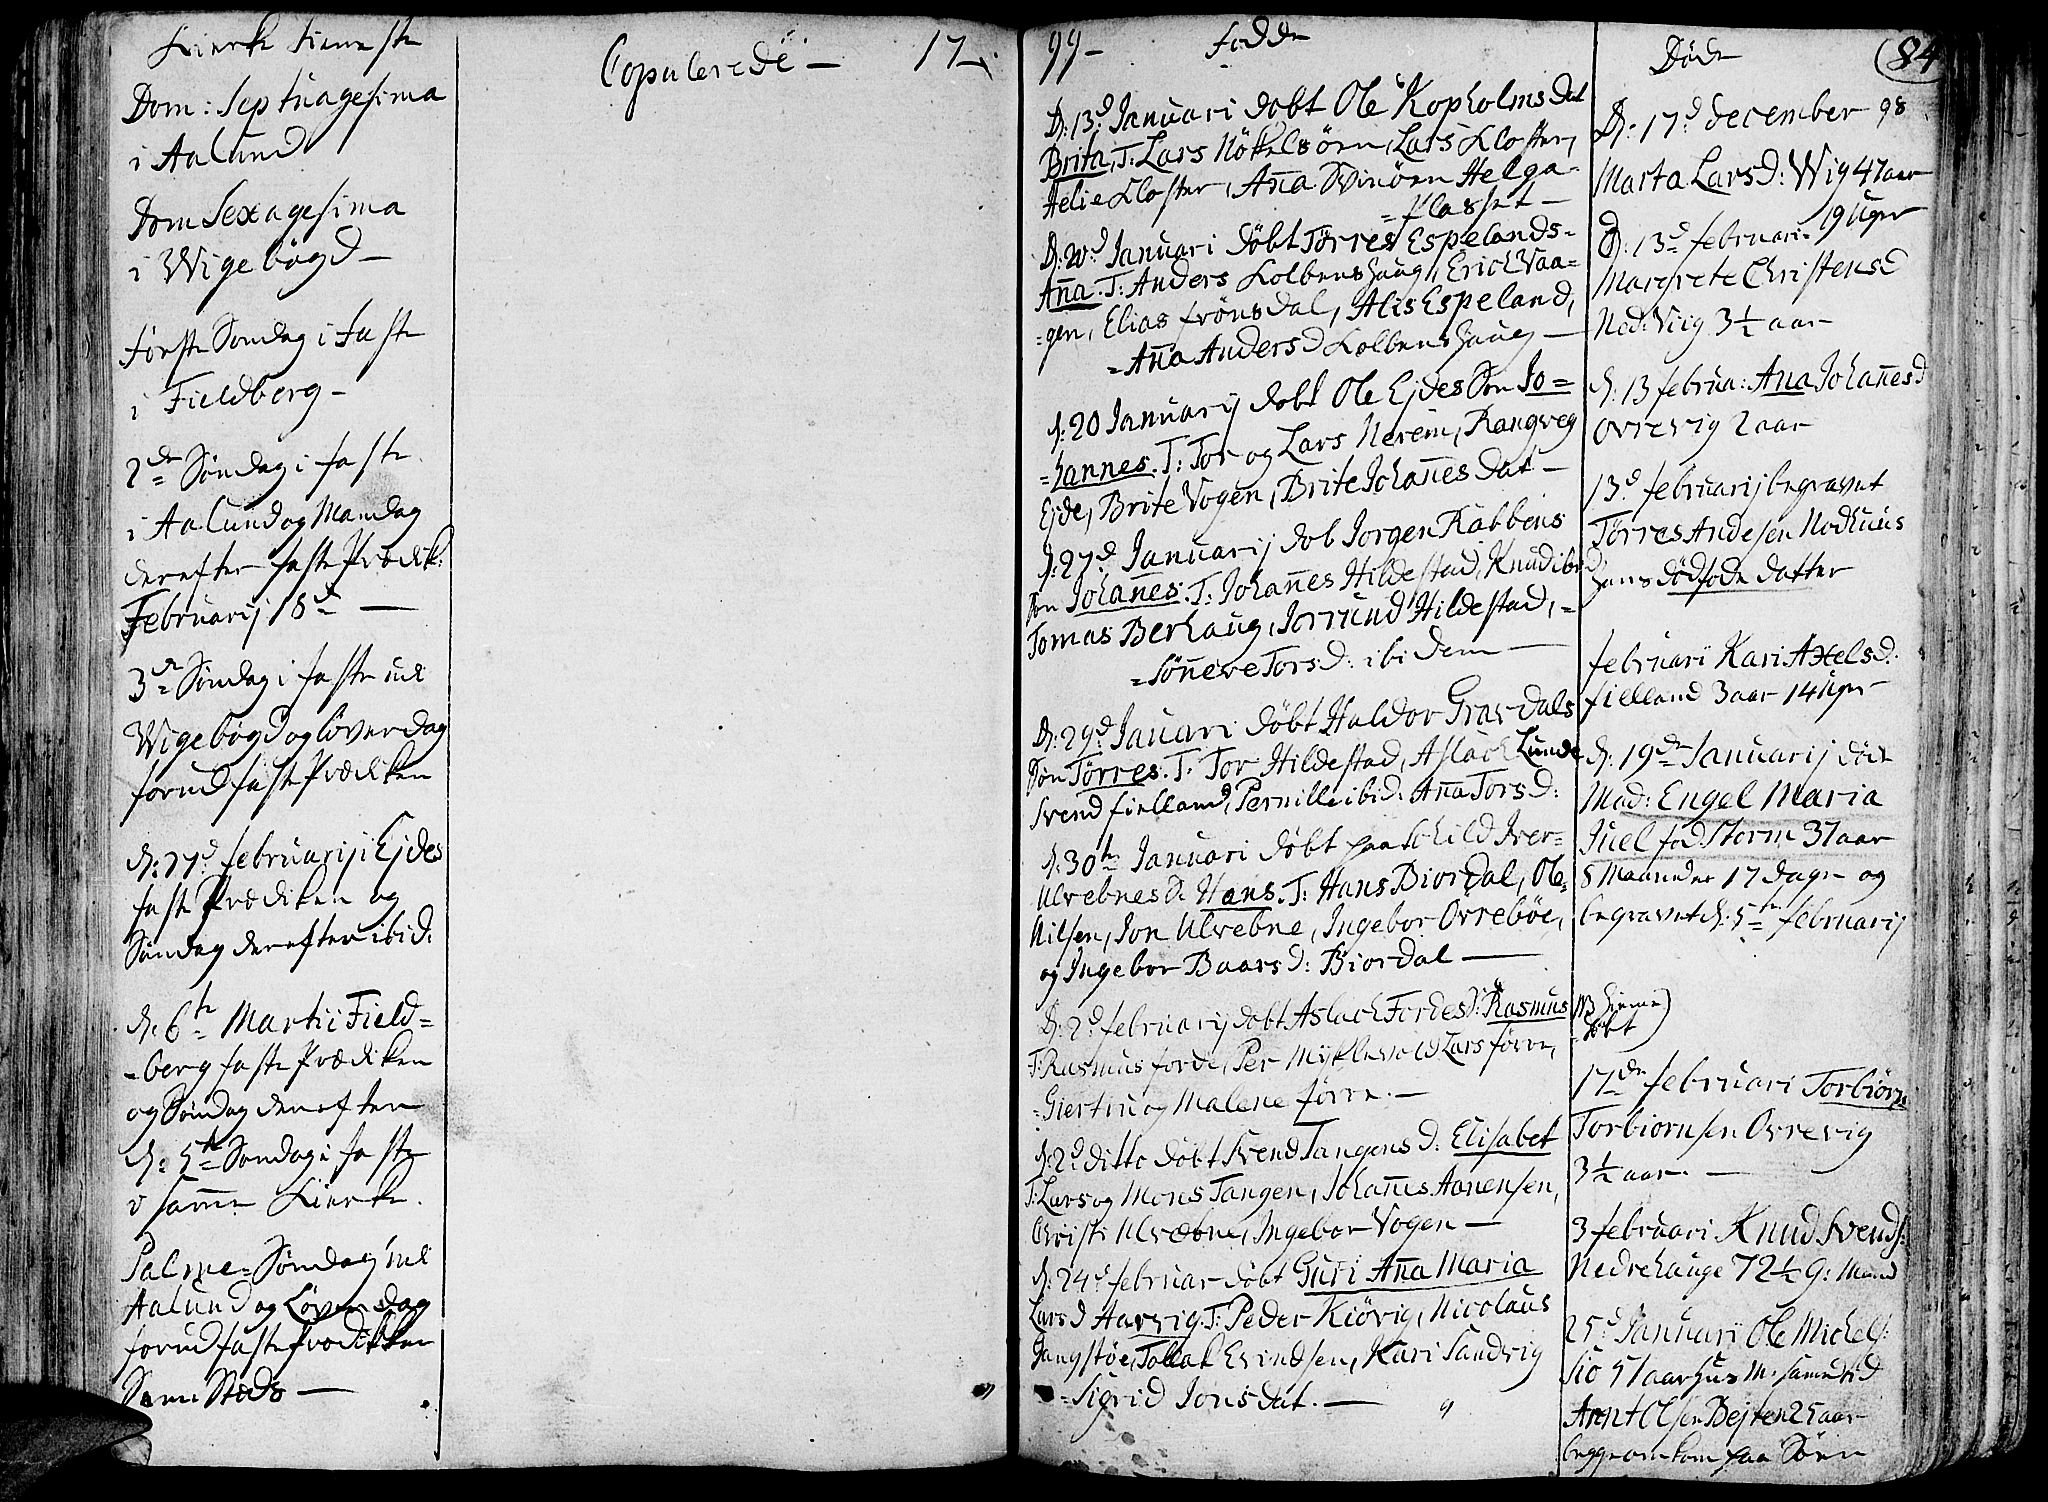 Kierke tieneste
Dom: Septuagesima
i Aalund
Dom Sexagesima
i Wigebøgd —
første Søndag i faste
i Fieldberg —
2de Søndag i faste
i Aalund og Mandag
derefter faste Prædik:
Februarij 18d —
3de Søndag i faste udi
Wigebøgd og løverdag
forud faste Prædiken
d: 27d februarij i Ejdes
faste Prædiken og
Søndag derefter ibid:
d. 6te Martii Field=
=berg faste Prædiken
og Søndag derefter
d: 5te Søndag i faste
samme Kierke.
Palme=Søndag udi
Aalund og Løverdag
forud faste Prædikken
Samme Steds —
Copulerede — 17
99 — fødde
D: 13d Januari døbt Ole Kopholms dat
Brita, T: Lars Nökelsörn, Lars Kloster,
Aelie Kloster, Aña Svinörn Helga
=flasset —
D: 20d Januari døbt Törres Espelands=
Aña. T: Anders Kolbenshaug, Erich Vaa=
=gen, Elias frönsdal, Alis Espeland,
=Aña Andersd Kolbenshaug —
d: 20 Januarij døbt Ole Ejdes Søn Jo=
=hannes. T: Tor og Lars Nerem, Rangveg
Ejde, Brite Vogen, Brite Johañes dat —
d: 27d Januarij døb Jorgen Rabbens
søn Johañes. T: Johañes Hildestad, Knud ibid,
Tomas Berhaug, Jorrund Hildestad, =
=Söñeve Torsd: ibidem —
D: 29d Januari døbt Haldor Gravdals
Søn Törres. T: Tor Hildestad, Aslach Lunde
Svend fielland, Pernille ibid: Aña Torsd:
d: 30te Januari døbt paa Schild Iver=
Ulvebnes d: Hans. T: Hans Biordal, Ole
Nilsen, Jon Ulvebne, Ingebor Övreböe,
og Ingebor Baarsd: Biordal —
D: 2d februarij døbt Aslach Fordes d: Rasmus
T: Rasmus forde, Per Myklevold Lars förre,
Giertru og Malene förre. —
d: 2d ditto døbt Svend Tangens d: Elisabet
T: Lars og Mons Tangen, Johañes Aanensen,
Christi Ulvebne, Ingebor Vogen —
d: 24d februar døbt Guri Aña Maria
Larsd Aarvig. T: Peder Kiövig, Nicolaus
Tangstöe, Tollak Evindsen, Kari Sandvig
=Sigrid Jonsdat. —
Døde 84
D: 17d december 98
Marta Larsd: Wig 47 aar
19 Uger
D: 13d februari
Margrete Christensd
Ned: Viig 3½ aar
d: 13 februa: Aña Johañesd
Ovrevig 2 aar
13d februarij begravet
Törres Andesen Nodhuus
hans dødføde datter
februari Kari Axelsd:
fielland 3 aar 14 Uger
d: 19de Januarij døde
Mad: Engel Maria
Juel fød Storm 37 aar
8 Maaneder 17 dage og
begravet d: 5te februarij
NB hieme
døbt
17de februari Torbiörn
Torbiornsen Ovrevig
3½ aar. —
3 februari Knud Svends:
Nedrehauge 72½ G: Mand
25d Januari Ole Michels:
Sio 51 aar huus M: samme tid
Arnt Olsen Bejten 25 aar
begge omkom paa Søen